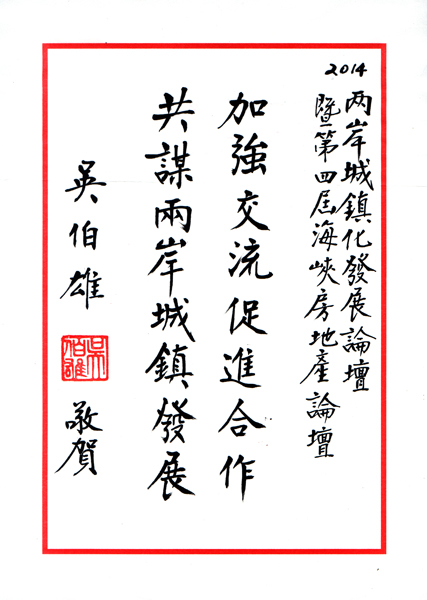 2014
两岸城鎮化發展論壇
暨第四屆海峽房地產論壇
加強交流促進合作
共謀兩岸城鎮發展
吳伯雄
吳伯雄
敬賀